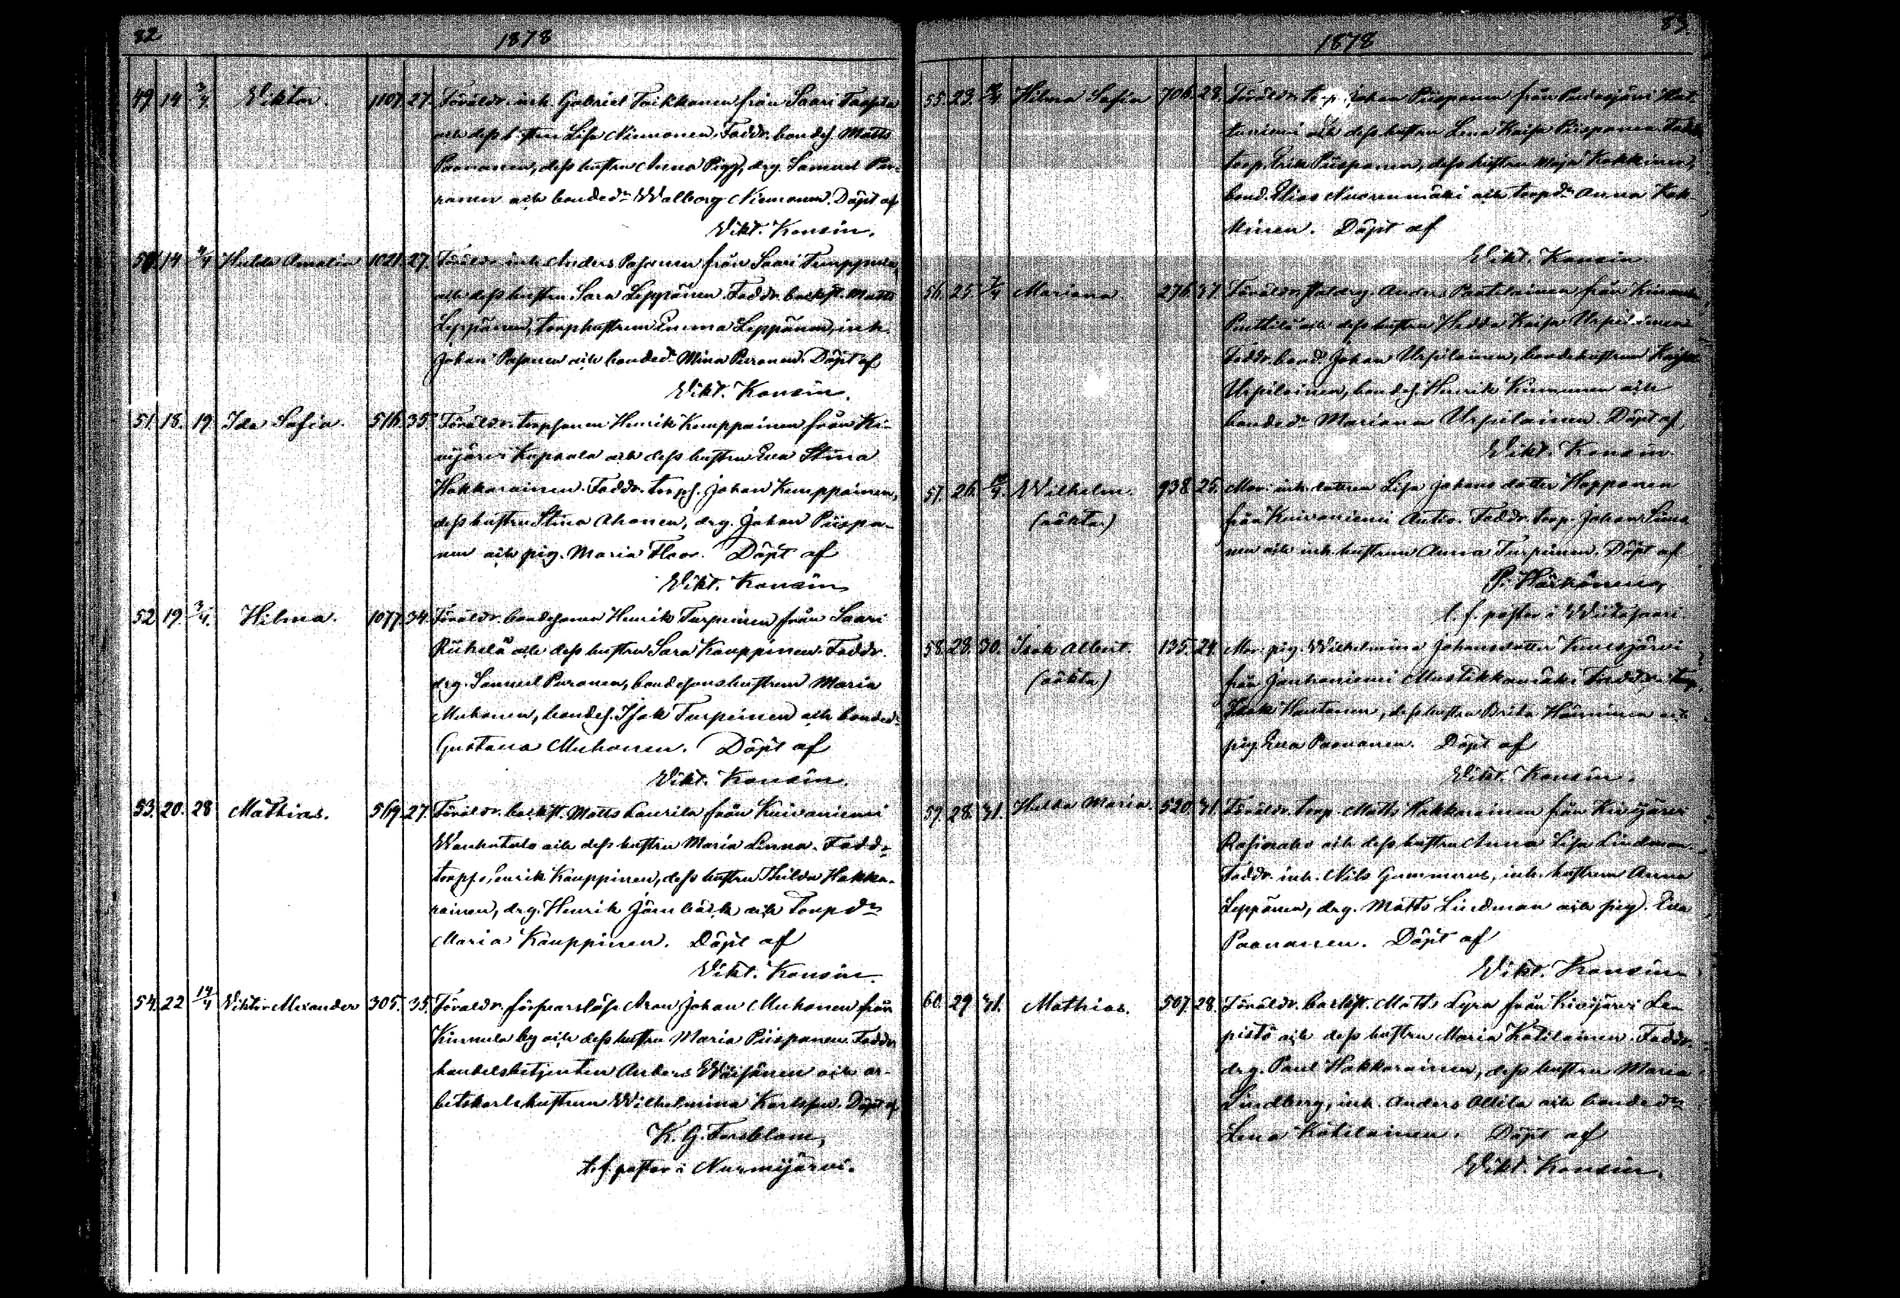 82
1878
49. 14. 3/4. Viktor. 1107. 27. Föräldr. inh. Gabriel Taikkonen från Saari Taapala
och dess hustru Lisa Niemonen. Faddr. bondes. Matts
Paananen, dess hustru Anna Pigg, drg. Samuel Pur-
ranen och bonded:r Walborg Niemonen. Döpt af
Vikt. Konsin.
50. 14 4/4 Hulda Amalia 1021. 27. Föräldr. inh. Anders Pasanen från Saari
och dess hustru Sara Leppänen. Faddr. backst. Matts
Leppänen, torphustrun Emma Leppänen, inh.
Johan Pasanen och bonded:r Mina Puranen. Döpt af
Vikt. Konsin.
51. 18. 19. Ida Sofia. 516. 35. Föräldr. torpsonen Henrik Kemppainen från Ki-
vijärvi Kapsala och dess hustru Eva Stina
Hakkarainen. Faddr. torps. Johan Kemppainen,
dess hustru Stina Ahonen, drg. Johan Piispa-
nen och pig. Maria Floor. Döpt af
Vikt. Konsin
52. 19. 3/4. Hilma. 1077. 34. Föräldr. bondesonen Henrik Turpeinen från Saari
Riihelä och dess hustru Sara Kauppinen. Faddr.
drg. Samuel Puranen, bondesonshustrun Maria
Muhonen, bondes. Isak Turpeinen och bonded:r
Gustava Muhonen. Döpt af
Vikt. Konsin.
53. 20. 28 Mathias. 569. 27. Föräldr. backst. Matts Laurila från Kuivaniemi
Wanhatalo och dess hustru Maria Linna. Faddr.
torps. Henrik Kauppinen, dess hustru Hulda Hakka-
rainen, drg. Henrik Jämbäck och Torpd:r
Maria Kauppinen. Döpt af
Vikt. Konsin.
54. 22 14/4 Viktor Alexander 305. 35. Föräldr. försvarslöse Aron Johan Muhonen från
Kinnula by och dess hustru Maria Piispanen. Faddr.
handelsbetjenten Anders Wäisänen och ar-
betskarlshustrun Wilhelmina Karlsson. Döpt af
K. G. Forsblom,
t. f. pastor i Nurmijärvi.
83.
1878
55. 23. Hilma Sofia 706. 28. Föräldr. torp. Johan Piispanen från Pudasjärvi
och dess hustru Lena Kaisa Piispanen. Faddr.
torp. Erik Piispanen, dess hustru Maja Kokkinen,
bond. Elias Nuorenmäki och torpd:r Anna Kok-
kinen. Döpt af
Vikt. Konsin
56. 25. 7/4 Mariana. 276. 37. Föräldr. statdrg. Anders Paatelainen från Kinnula
Punttila och dess hustru Hedda Kaisa Urpilainen
Faddr. bond. Johan Urpilainen, bondehustrun Kaisa
Urpilainen, bondes. Henrik Kinnunen och
bonded:r Mariana Urpilainen. Döpt af,
Vikt. Konsin.
57. 26. Wilhelm. 938. 25. Mor: inh. dottren Lisa Johans dotter Hopponen
(oäkta.)
från Kuivaniemi Autio. Faddr. torp. Johan Simo-
nen och inh. hustrun Anna Turpeinen. Döpt af
P. Härkönen,
t. f. pastor i Wiitasaari.
58. 28. 30. Isak Albert. 135. 24. Mor: pig. Wilhelmina Johansdotter Kuusjärvi
(oäkta)
från Jauhoniemi Mustikkamäki. Faddr. torp.
Isak Hautanen, dess hustru Brita Hänninen och
pig. Eva Paananen. Döpt af
Vikt. Konsin.
59. 28. 31. Hulda Maria. 520. 31. Föräldr. torp. Matts Hakkarainen från Kivijärvi
Rasinaho och dess hustru Anna Lisa Lindman.
Faddr. inh. Nils Gummerus, inh. hustrun Anna
Leppänen, drg. Matts Lindman och pig. Eva
Paananen. Döpt af
Vikt. Konsin
60. 29 31. Mathias. 507. 28. Föräldr. backst. Matts Lyra från Kivijärvi Le-
pistö och dess hustru Maria Kotilainen. Faddr.
drg. Paul Hakkarainen, dess hustru Maria
Lindberg, inh. Anders Alkila och bonded:r
Lena Kotilainen. Döpt af
Vikt. Konsin.